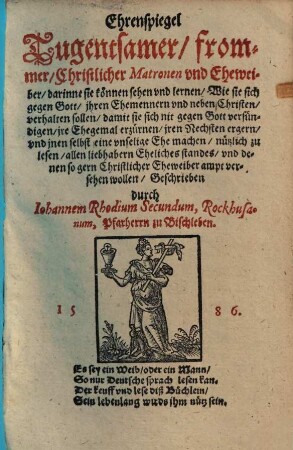 Ehrenspiegel
Tugentsamer/ from-
mer/ Christlicher Matronen vnd Ehewei-
ber/ darinne sie können sehen vnd lernen/ Wie sie sich
gegen Gott/ jhren Ehemennern vnd neben Christen/
verhalten sollen/ damit sie sich nit gegen Gott versün-
digen/ jre Ehegemal erzürnen/ jren Nechsten ergern/
vnd jnen selbst eine vnselige Ehe machen/ nützlich zu
lesen/ allen liebhabern Eheliches standes/ vnd de-
nen so gern Christlicher Eheweiber ampt ver-
sehen wollen/ Geschrieben
durch
Iohannem Rhodium Secundum, Rockhusa-
num, Pfarherrn zu Bischleben.
15 86.
Es sey ein Weib/ oder ein Mann/
So nur Deutsche sprach lesen kan.
Der keuff vnd lese diß Büchlein/
Sein lebenlang wirds jhm nütz sein.